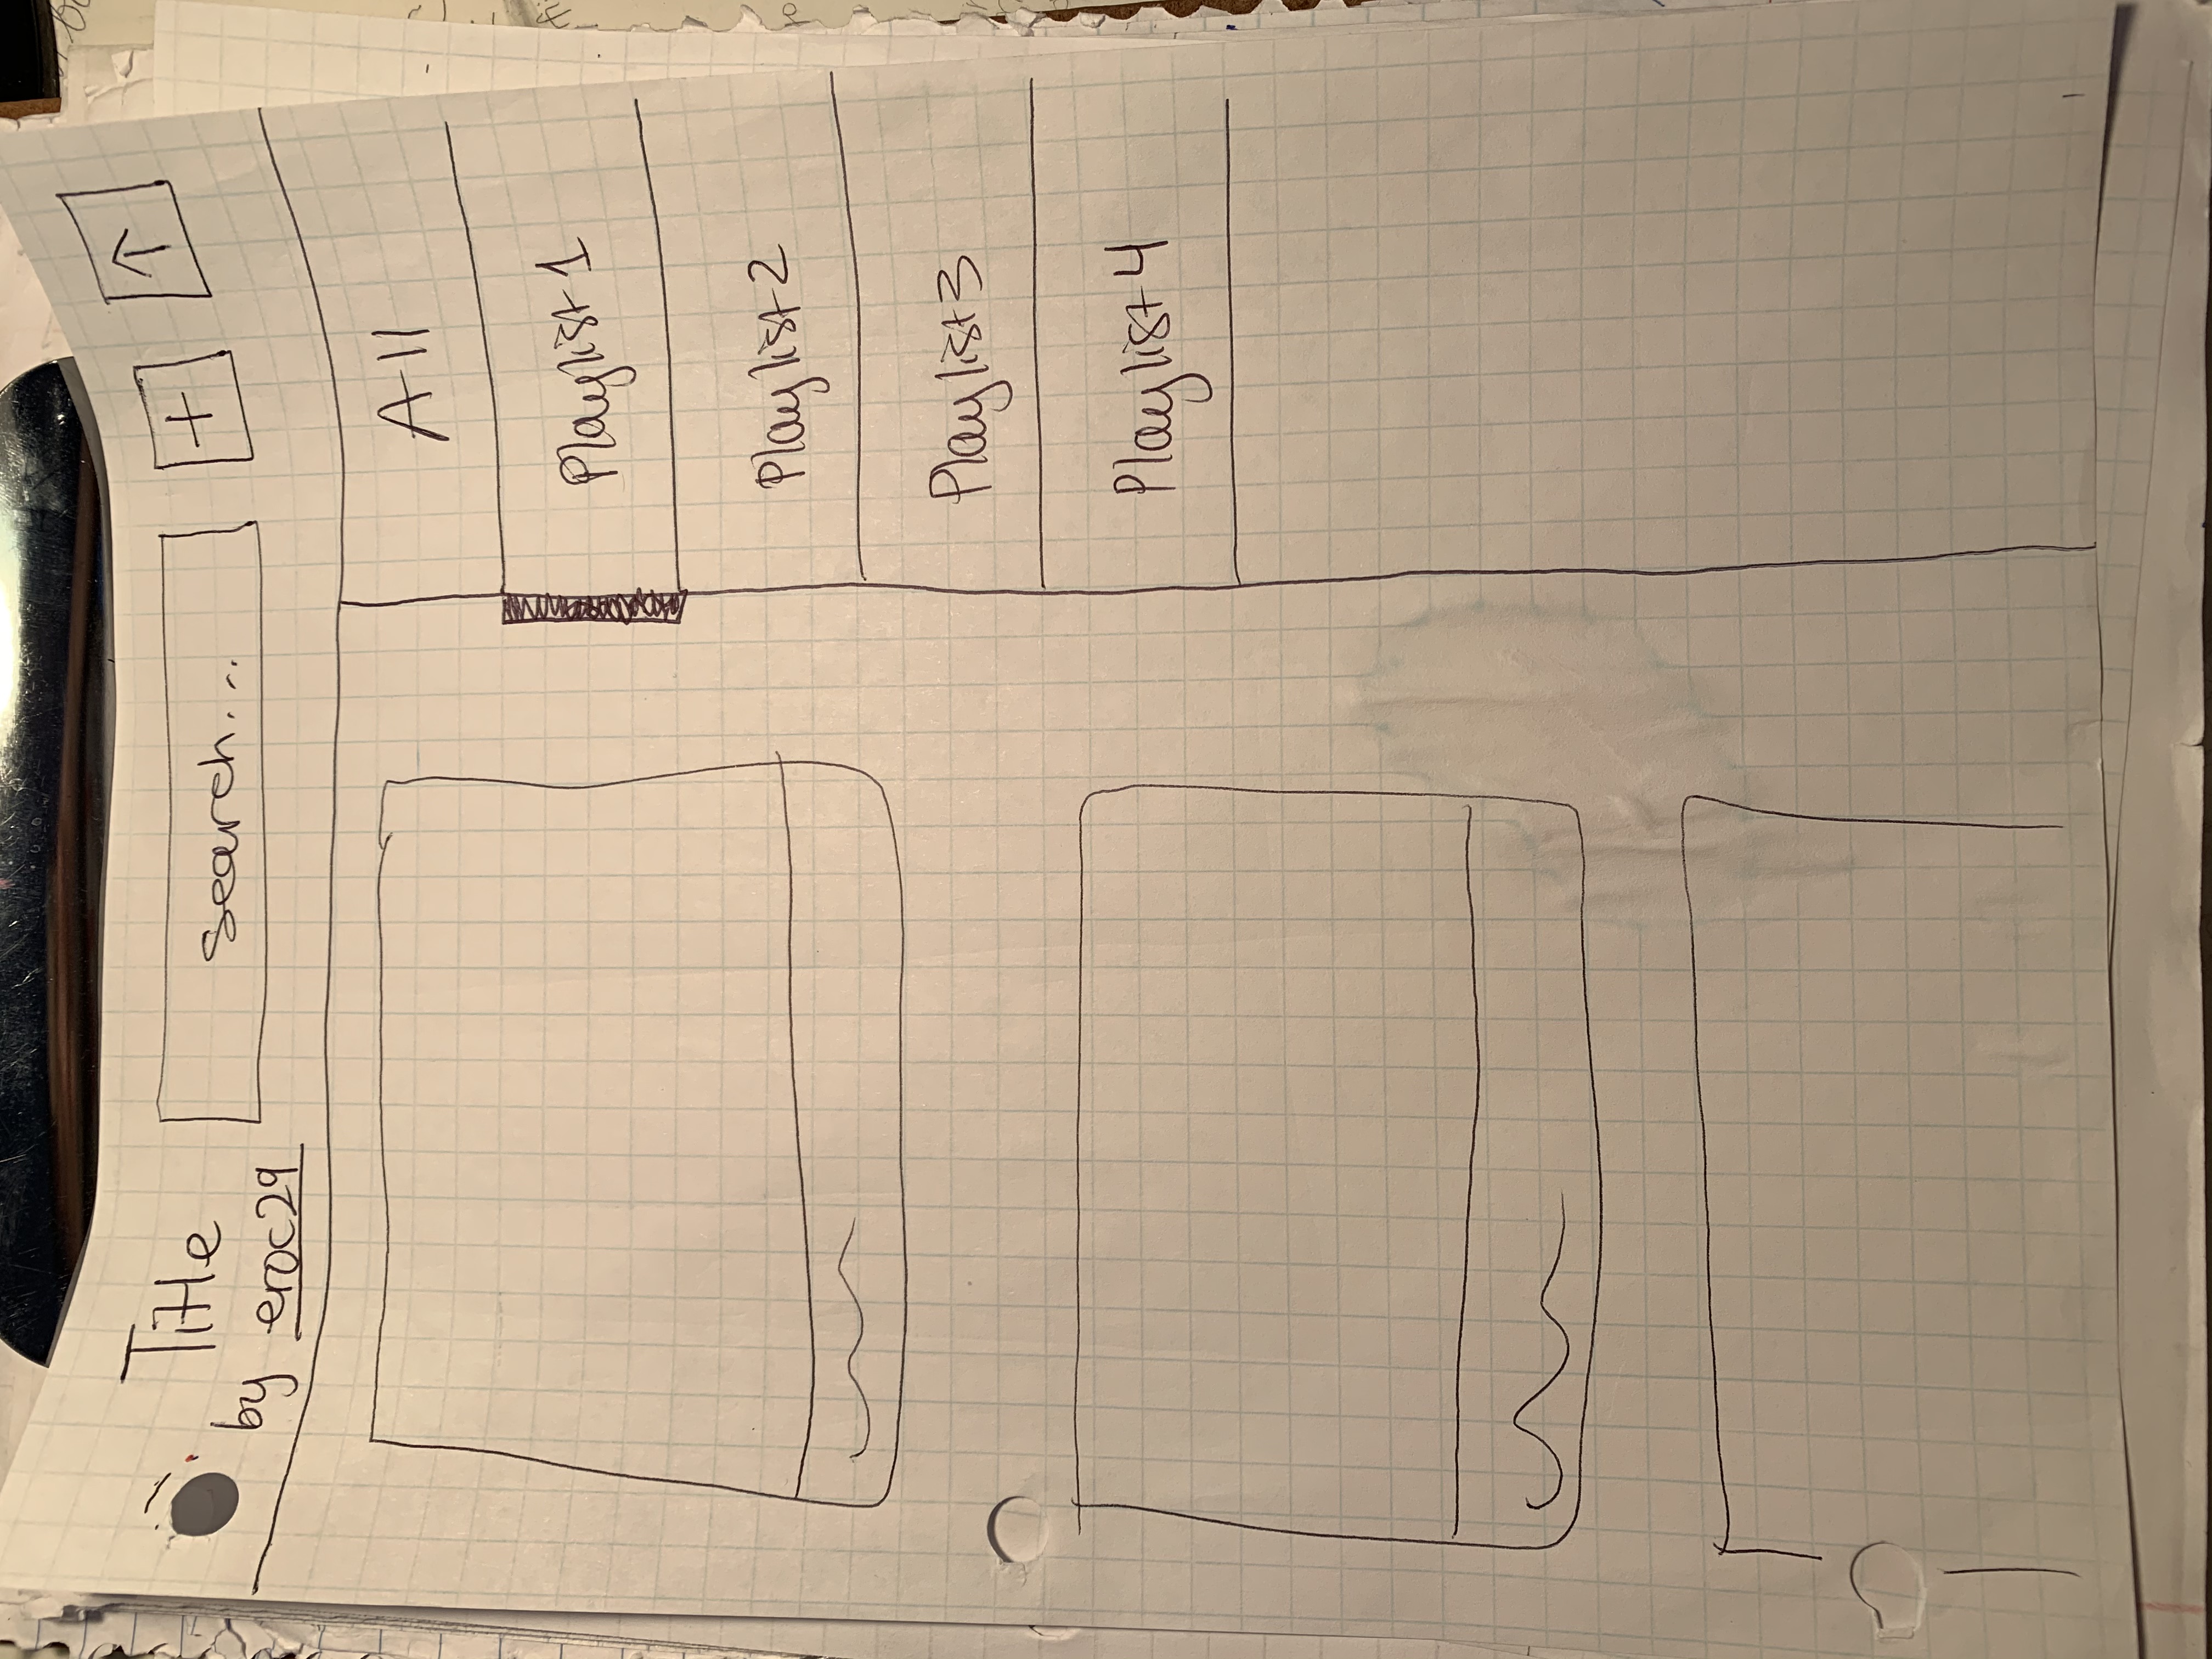 Title
by eroc29
search...
+
↑
All
Playlist 1
Playlist 2
Playlist 3
Playlist 4